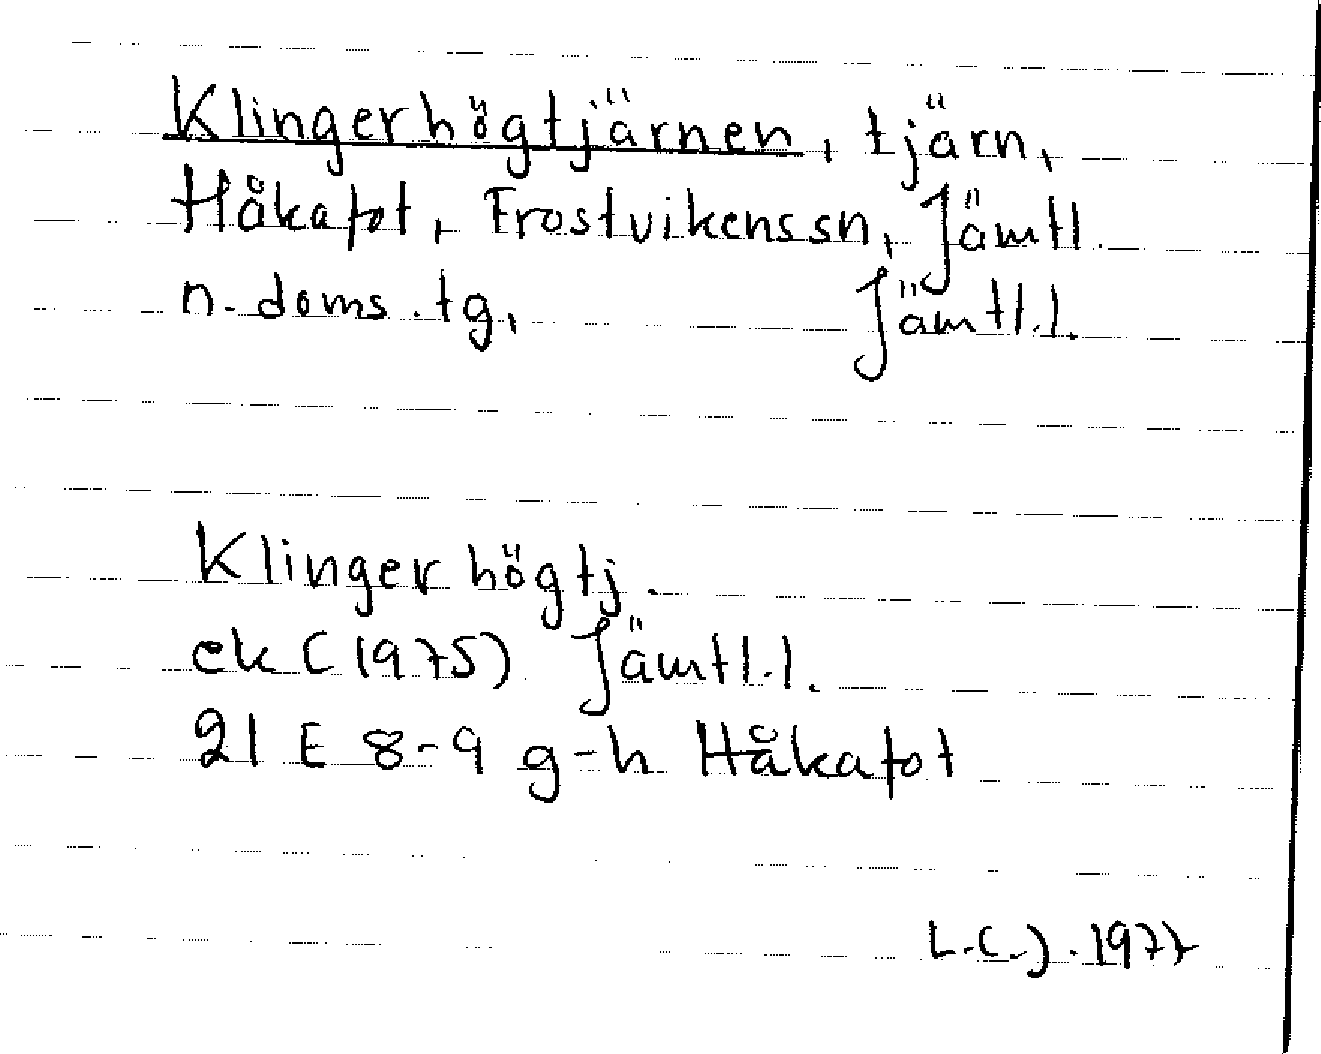 Klingerhögtjärnen, tjärn,
Håkafot, Frostvikens sn, Jämtl.
n. doms. tg, Jämtl.l.
Klingerhögtj.
ek (1975) Jämtl.l.
21 E 8-9 g-h Håkafot
L.C.J. 1977